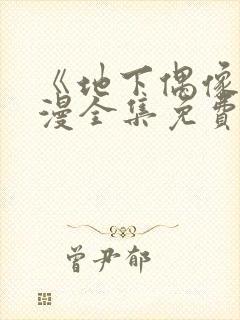 《地下偶像
漫全集免費
曾尹郁